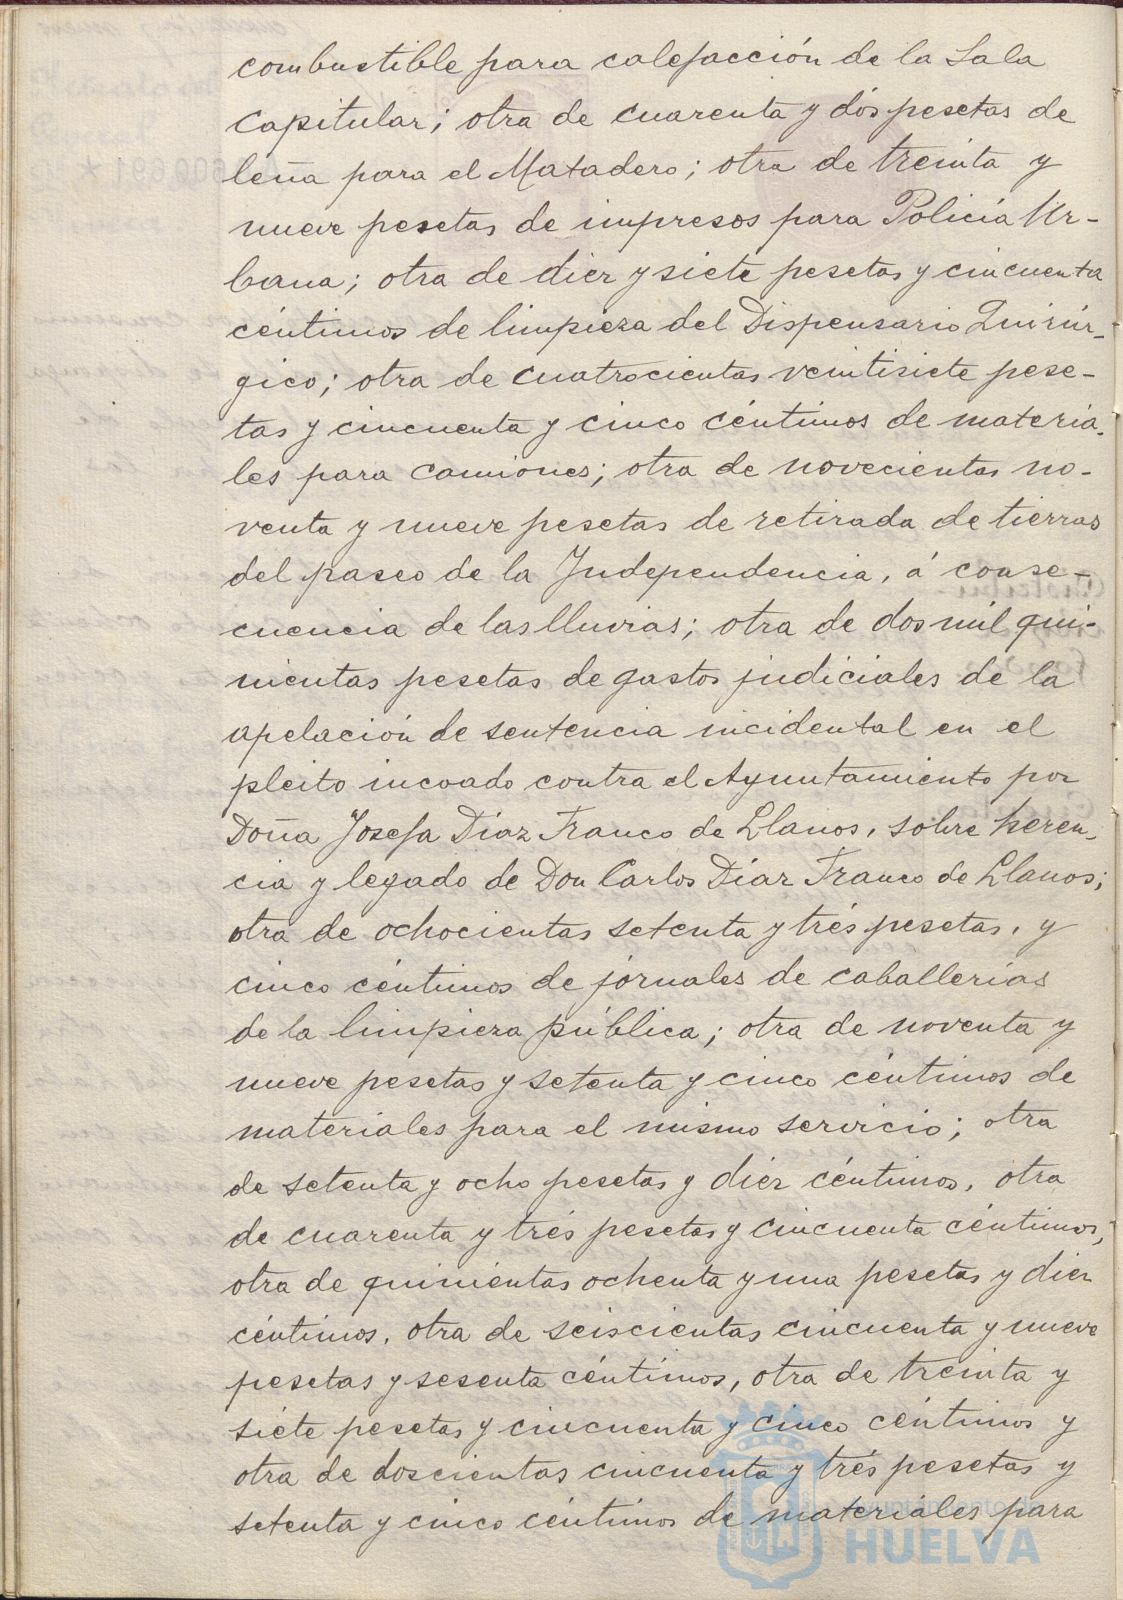 combustible para calefacción de la Sala
Capitular; otra de cuarenta y dós pesetas de
leña para el Matadero; otra de treinta y
nueve pesetas de impresos para Policía Ur-
bana; otra de diez y siete pesetas y cincuenta
céntimos de limpieza del Dispensario Quirúr-
gico; otra de cuatrocientas veintisiete pese-
tas y cincuenta y cinco céntimos de materia-
les para camiones; otra de novecientas no-
venta y nueve pesetas de retirada de tierras
del paseo de la Independencia, á conse-
cuencia de las lluvias; otra de dos mil qui-
nientas pesetas de gastos judiciales de la
apelación de sentencia incidental en el
pleito incoado contra el Ayuntamiento por
Doña Josefa Díaz Franco de Llanos, sobre heren-
cia y legado de Don Carlos Díaz Franco de Llanos;
otra de ochocientas setenta y trés pesetas, y
cinco céntimos de jornales de caballerías
de la limpieza pública; otra de noventa y
nueve pesetas y setenta y cinco céntimos de
materiales para el mismo servicio; otra
de setenta y ocho pesetas y diez céntimos, otra
de cuarenta y trés pesetas y cincuenta céntimos,
otra de quinientas ochenta y una pesetas y diez
céntimos, otra de seiscientas cincuenta y nueve
pesetas y sesenta céntimos, otra de treinta y
siete pesetas y cincuenta y cinco céntimos y
otra de doscientas cincuenta y trés pesetas y
setenta y cinco céntimos de materiales para
Ayuntamiento de
HUELVA